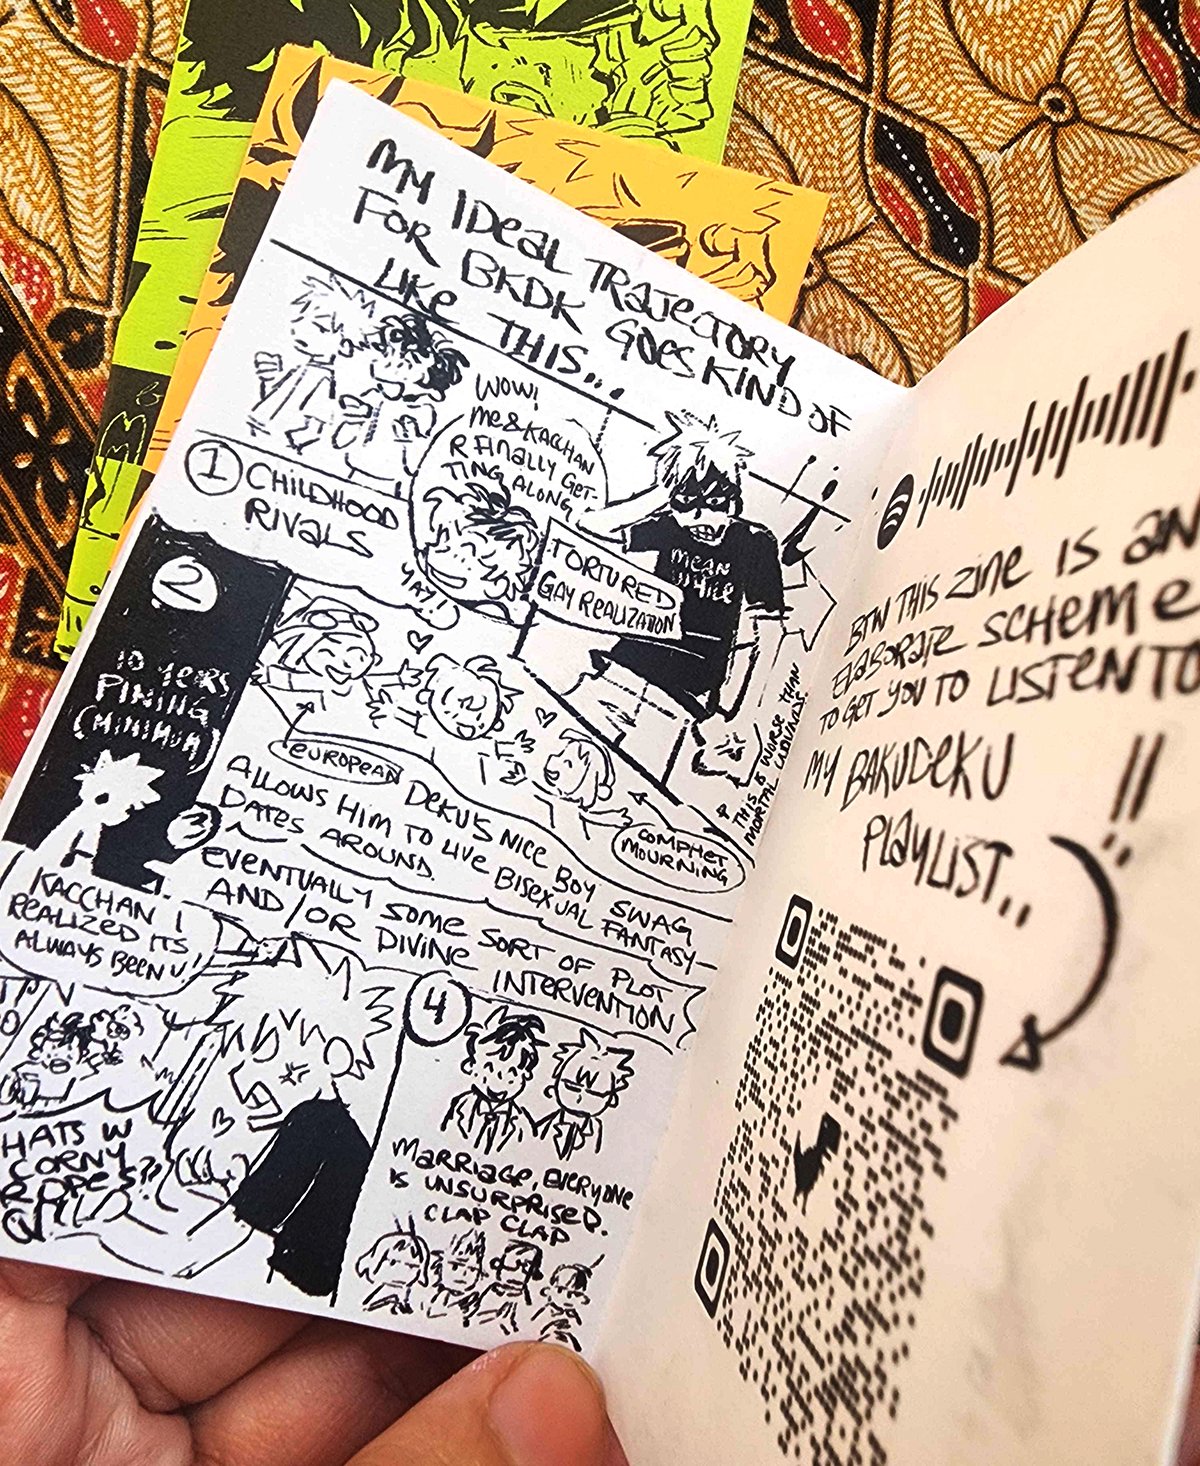 MY IDEAL TRAJECTORY
FOR BKDK GOES KIND OF
LIKE THIS...
1 CHILDHOOD
RIVALS
WOW!
ME & KACCHAN
R FINALLY GET-
TING ALONG
YAY!
MEAN
WHILE
TORTURED
GAY REALIZATION
THIS IS WORSE THAN
MORTAL WOUNDS
2
10 YEARS
PINING
(MINIMUM)
EUROPEAN
COMPHET
MOURNING
DEKU'S NICE BOY SWAG
ALLOWS HIM TO LIVE BISEXUAL FANTASY—
DATES AROUND.
EVENTUALLY SOME SORT OF PLOT
AND/OR DIVINE INTERVENTION
KACCHAN I
REALIZED ITS
ALWAYS BEEN U!
HATS W
CORNY
4
MARRIAGE, EVERYONE
IS UNSURPRISED.
CLAP CLAP
BTW THIS ZINE IS AN
ELABORATE SCHEME
TO GET YOU TO LISTEN TO
MY BAKUDEKU !!
PLAYLIST..